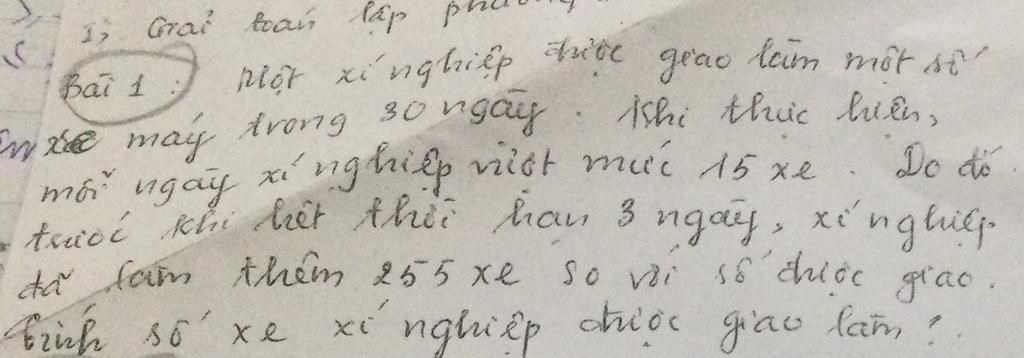 1, Giải toán lập phương
Bài 1: Một xí nghiệp được giao làm một số
xe máy trong 30 ngày. Khi thực hiện,
mỗi ngày xí nghiệp vượt mức 15 xe. Do đó
trước khi hết thời hạn 3 ngày, xí nghiệp
đã làm thêm 255 xe so với số được giao.
tính số xe xí nghiệp được giao làm?